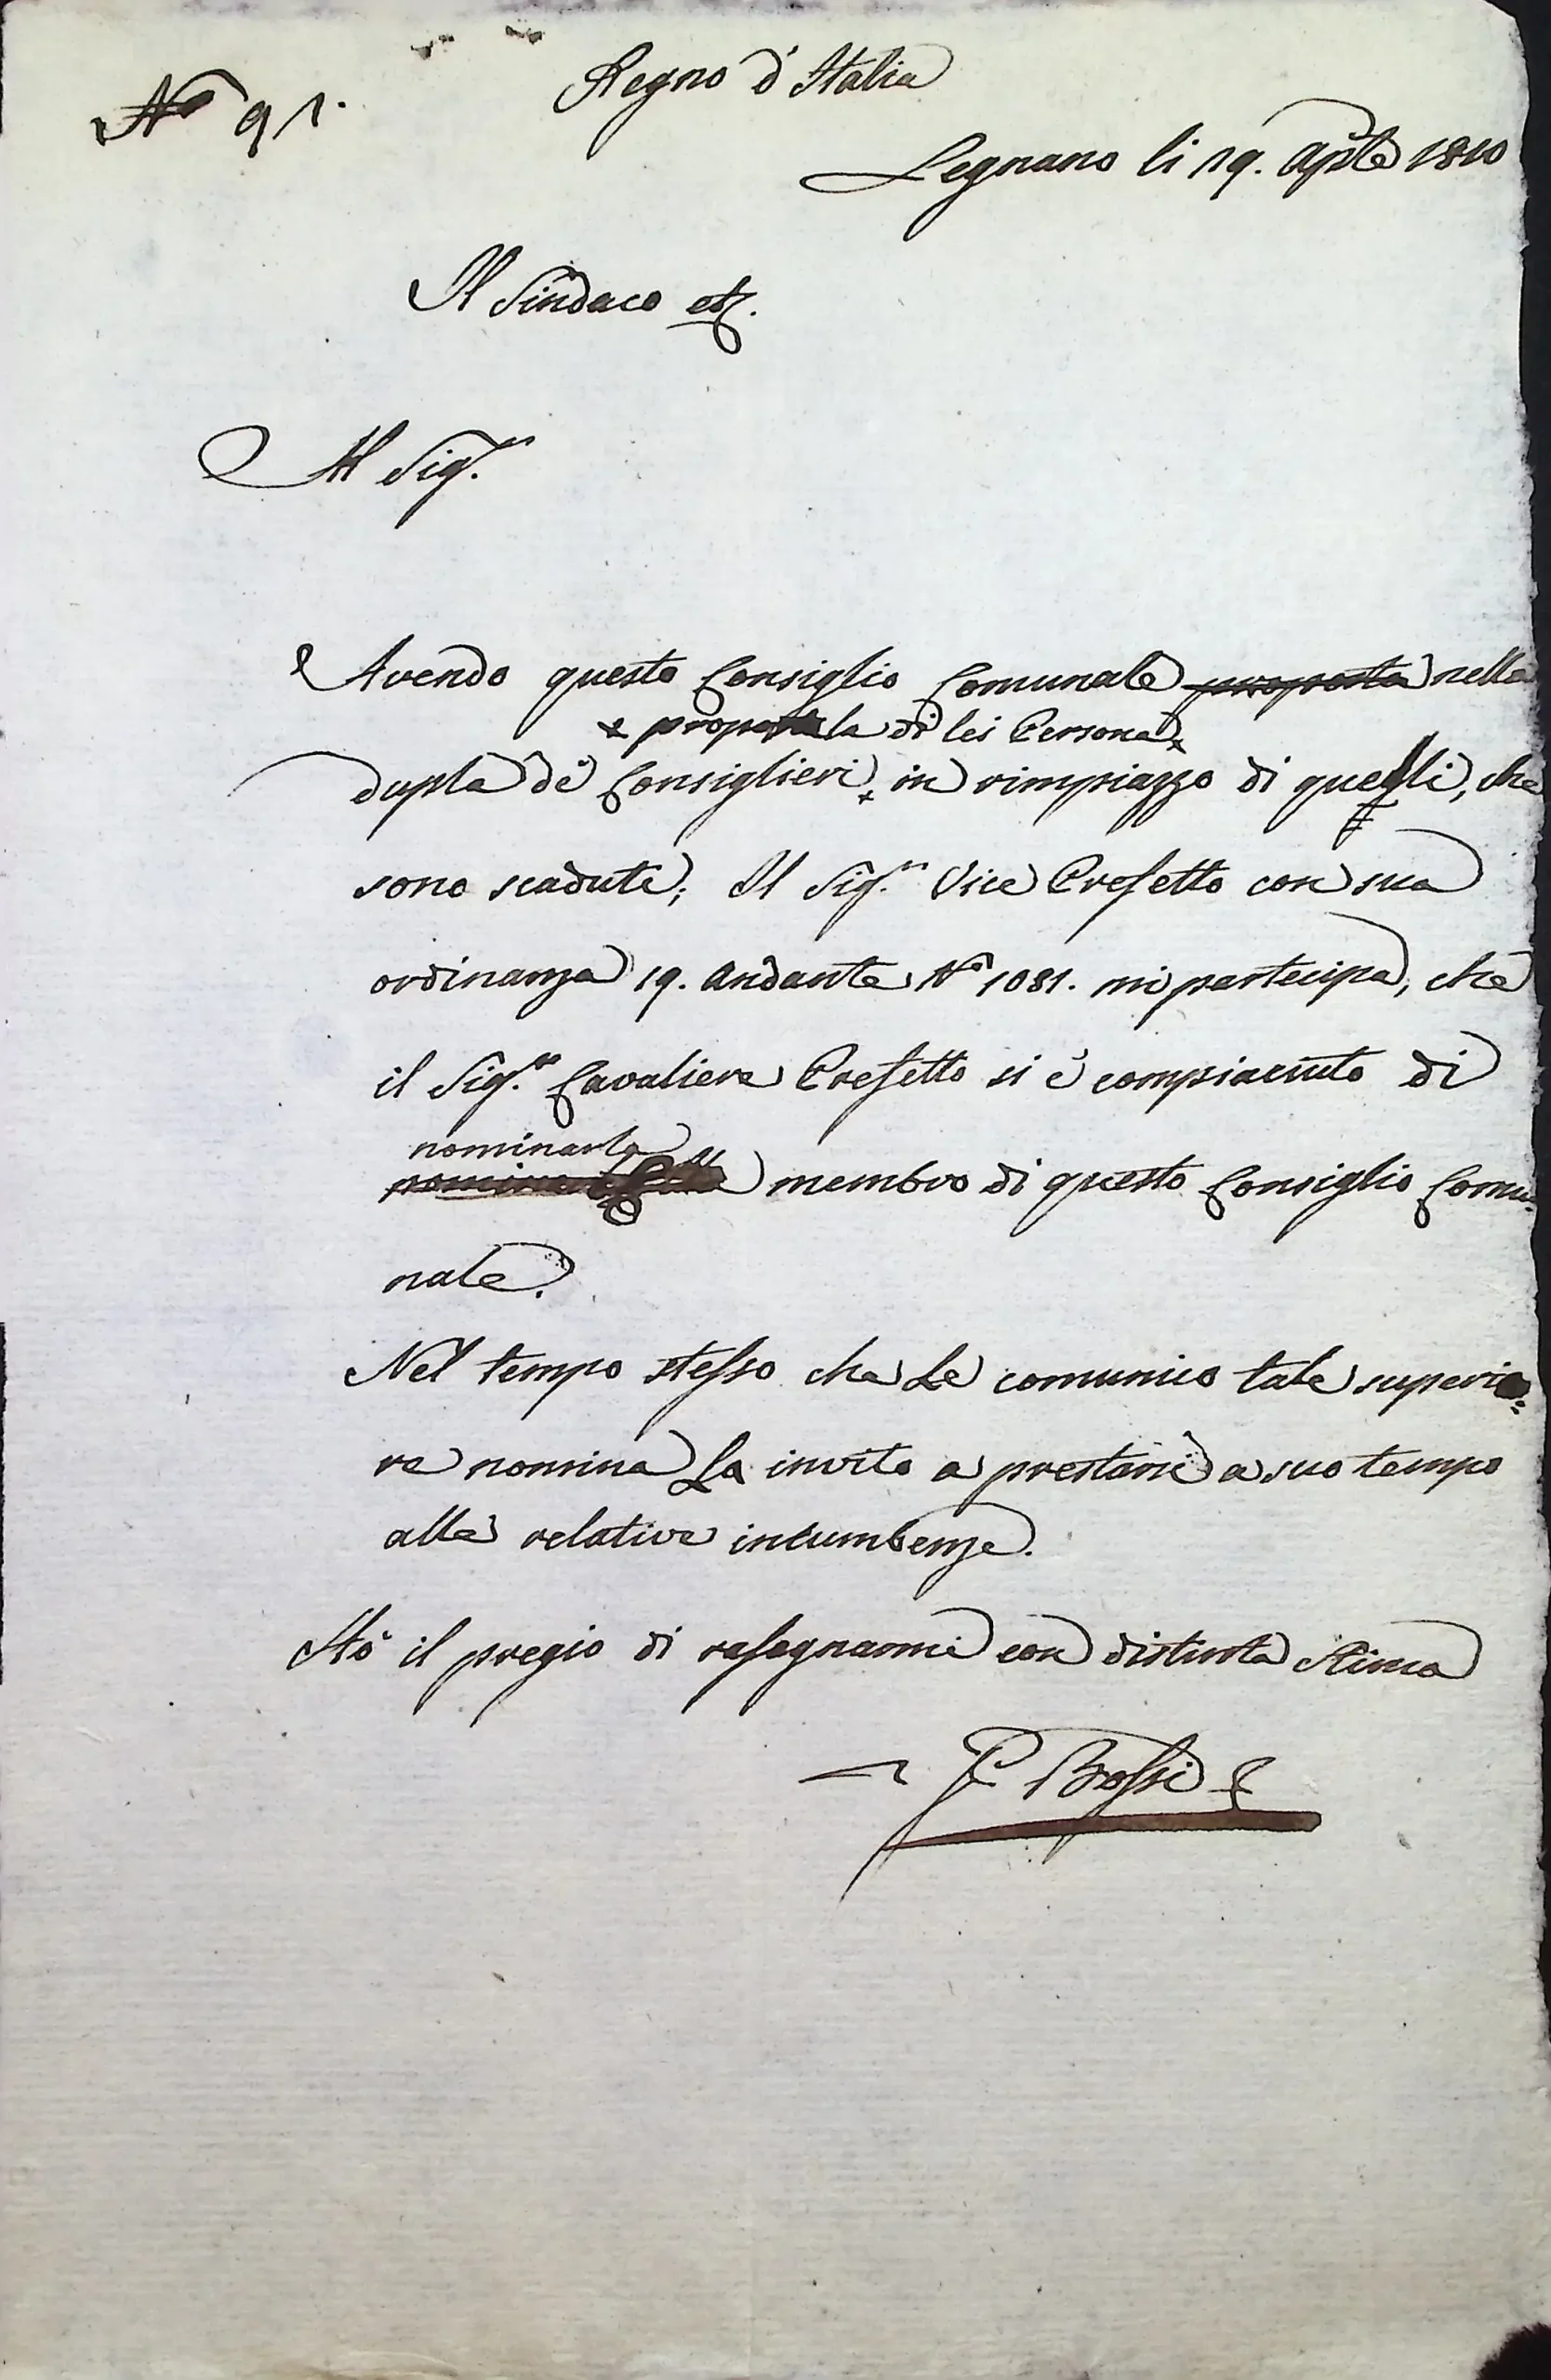 Regno d'Italia
N° 91.
Legnano li 19. Aple 1810
Il Sindaco etc.
Al Sigr.
Avendo questo Consiglio Comunale proposta nella
x proposta la di lei Persona x
dupla de' Consiglieri x in rimpiazzo di quelli, che
sono scaduti; Il Sigr. Vice Prefetto con sua
ordinanza 19. Andante N° 1081. mi partecipa, che
il Sigr. Cavaliere Prefetto si è compiaciuto di
nominarla
membro di questo Consiglio Comu-
nale.
Nel tempo stesso che Le comunico tale superio=
re nomina La invito a prestarsi a suo tempo
alle relative incumbenze.
Hò il pregio di rassegnarmi con distinta stima
F Bossi